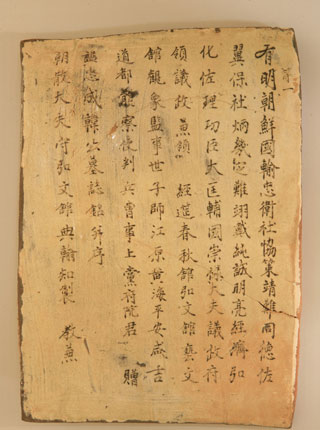 一
有明朝鮮國輸忠衛社協策靖難同德佐
翼保社炳幾定難翊戴純誠明亮經濟弘
化佐理功臣大匡輔國崇祿大夫議政府
領議政兼領 經筵春秋館弘文館藝文
館觀象監事世子師江原黃海平安咸吉
道都體察使判兵曹事上黨府院君 贈
諡忠成韓公墓誌銘并序
朝散大夫守弘文館典翰知製 教兼